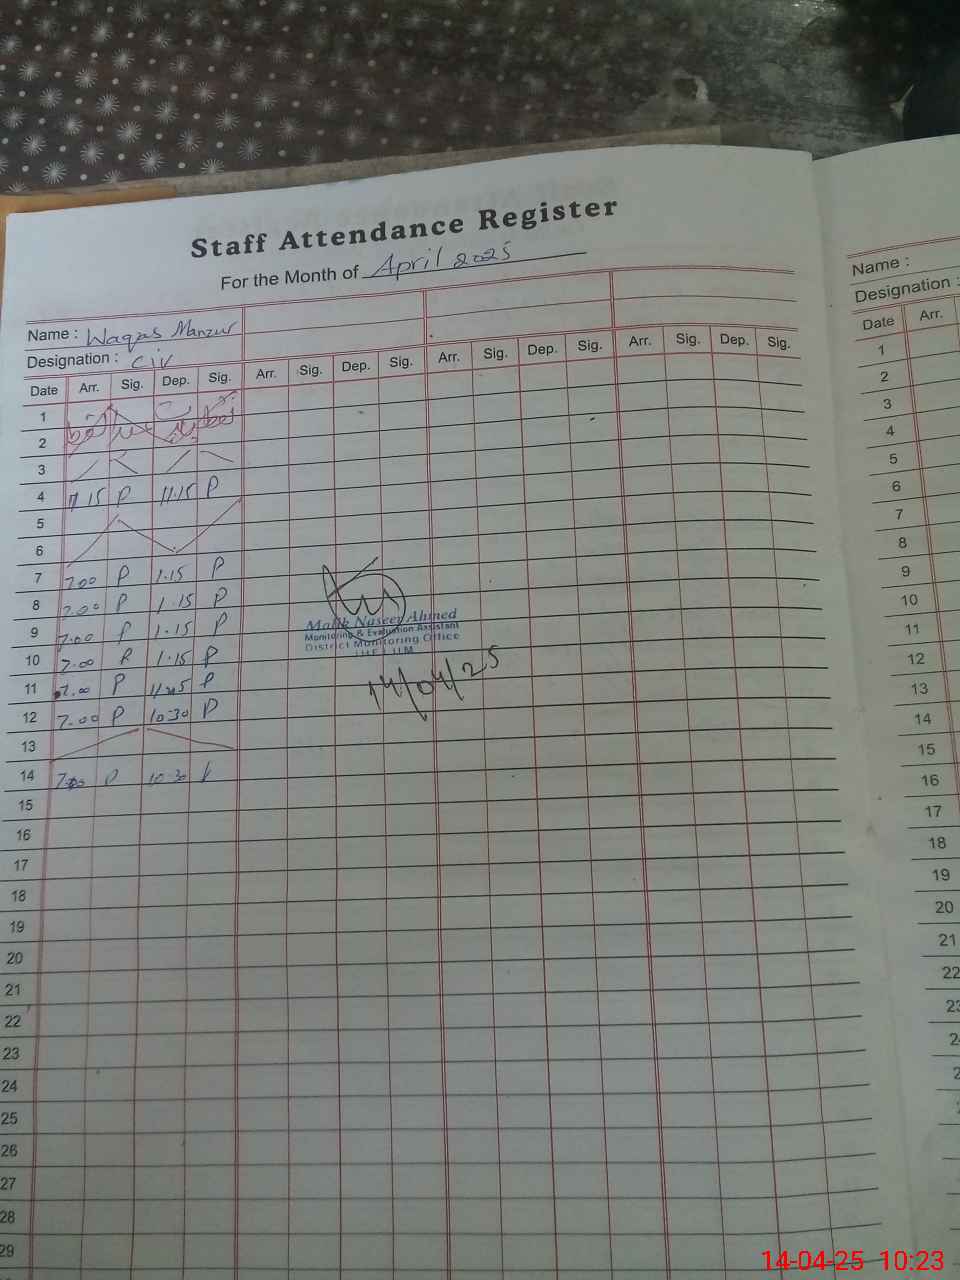 Staff Attendance Register
For the Month of April 2025
Name : Waqas Manzur
Designation : civ
Date Arr. Sig. Dep. Sig. Arr. Sig. Dep. Sig. Arr. Sig. Dep. Sig. Arr. Sig. Dep. Sig.
1
2
3
4 7.15 P 11.15 P
5
6
7 7.00 P 1.15 P
8 7.00 P 1.15 P
9 7.00 P 1.15 P
10 7.00 P 1.15 P
11 7.00 P P
12 7.00 P 10.30 P
13
14 P 10.30
15
16
17
18
19
20
21
22
23
24
25
26
27
28
29
Malik Naseer Ahmed
Monitoring & Evaluation Assistant
District Monitoring Office
JHELUM
14/04/25
Name :
Designation :
Date Arr.
1
2
3
4
5
6
7
8
9
10
11
12
13
14
15
16
17
18
19
20
21
22
14-04-25 10:23